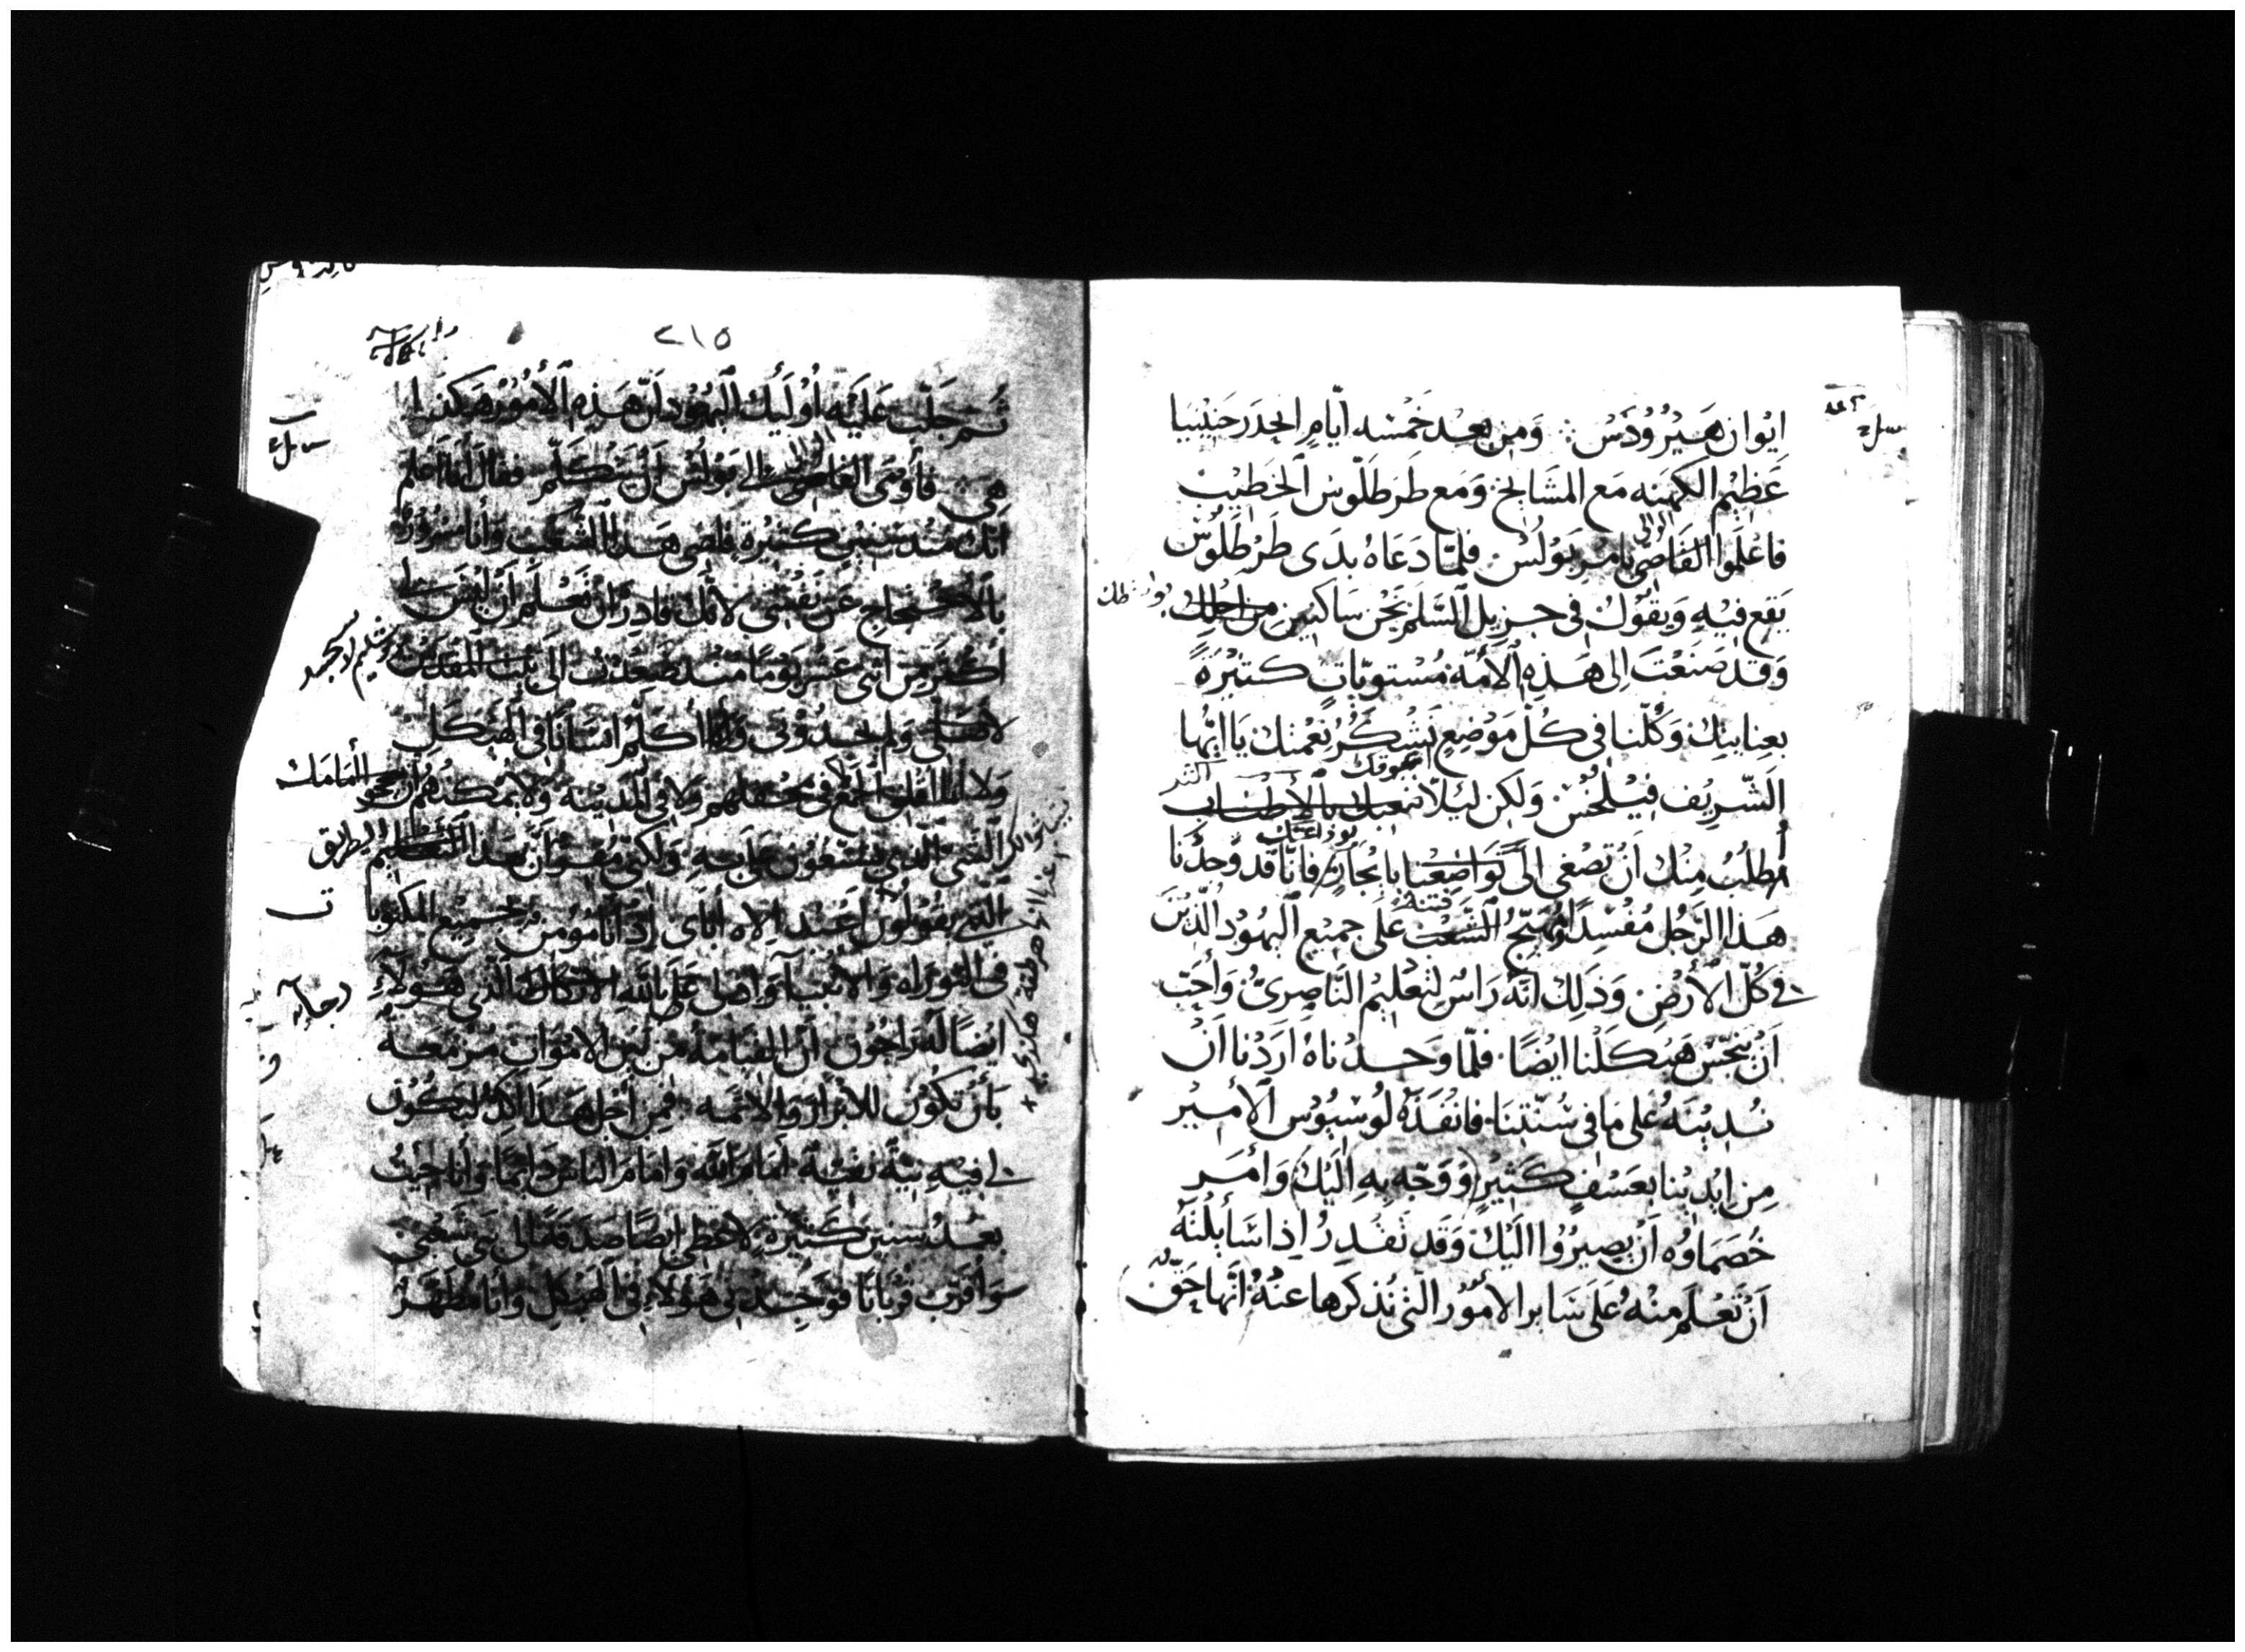 ايوان هَيْرُودَس ∴ وَمِن بعد خَمْسه ايّامِ انحدَر حَنِيْنيا
عَظِيْم الكهنه مَع المشَايخ وَمَع طَرطَلّوس الخَطيْب
الوالى
فاعْلَموا القَاضِى بامر بَوْلُس فلمّا دَعَاهُ بدَى طَرْطَلُوسُ
يَقع فيْهِ وَيقوُل فى جزيل السَّلم نَحْن سَاكنين من اجلك
وَقد صَنَعْتَ الى هَذِهِ الأمّة مُسْتويَاتٍ كثيْرَةً
بعِنايتك وَكُلّنا فى كُل مَوْضِع نَشْكُرُ نعْمتك يَا ايُّها
الشّريف فيْلخس وَلكن لئلّا نتعبك بالاطناب
نعوقك
اطلُبُ مِنْك اَن تصْغى الى تواضعنا بايْجَازٍ فانّا قد وَجدْنا
فتنه
هَذا الرّجُل مُفسِدًا وَمُهَيّجُ الشّعْب عَلى جميع اليهُود الذيْن
فى كُلّ الأرْض وَذلِك انّهُ رَاسٌ لتعْليْم النَّاصِرىّ وَأحَبّ
اَنْ ينَجّسْ هَيْكلنا ايْضًا فلمّا وَجدْناهُ ارَدْنا انْ
نُديْنهُ عَلى مَا فى سُنّتنا فانْقذهُ لوُسيُوُس الأميْر
مِن ايْديْنا بعَسْفٍ كَثيْرٍ وَوَجّه بهِ اليْكَ وَأمَر
خُصَمَاوُه اَنْ يصِيْرُوا اليْك وَقد تَقدِرُ اذا سَأيلْتهُ
اَنْ تَعْلَم منْهُ عَلى سَاير الأمُوْر التى نُذكرها عنْهُ انّها حَقّ
٢١٥
ثم جَلّب عَليْه اُوْلَئِك اليَهُود اَنّ هَذِهِ الأمُوْر هَكذا
الوالى
هِىَ فأومَى القاضى الى بَوْلُس اَنْ يَتَكَلّم فقال اَنا اعْلم
انّك مُنذ سنيْن كثيْرة قاضى هَذا الشَّعْب وَأنا مَسْرُورٌ
بالاحْتجاج عن نفْسى لانّك قادِرٌ انْ تَعْلَم اَنْ ليْسَ لى
أكثَر مِن اثنى عَشر يَوْمًا مُنذ صَعدْت الى بَيْت المقدس
اوروشليم لاسجد
لأصَلى وَلم يجدُوْنى وَأنا أكَلّم انسَانًا فى الهَيْكل
وَلا فى مَحْفلهم وَلا فى المَديْنه وَلا يُمْكنهُم انْ
امامك
الشّىْ الذى يَسْعَوْن عَلىّ بهِ وَلكنى مُقِرّ اَنّ بهَذا التعْليْم
الطريق
الذى يَقُولُون اعْبُد الاه أبَاى اذ أنا مُوْمن بجميْع المكتوبا
ت
فى التوراه وَالأنبيَا وَلى عَلى الله الاتكال الذى هَوُلاء
رجا
ايْضًا لهُ رَاجُوْن اَنّ القيَامَة مِن بَيْن الأمْوَات مُزْمعَة
بأنْ تكُوْن للأبْرَار وَالأثمَه فمِن أجْل هَذا
لى فيْهِ نِيّة نقيّة امَام الله وَامَام الناس دَايمًا وَأنا جيْتُ
بعْد سنيْن كَثيْرَة لأعْطى ايْضًا صَدقَة الى بنى شَعْبى
وَأقرّب قُرْبَانًا فوَجَدنى هَوُلاء فى الهَيْكل وَأنا مُطهّرٌ